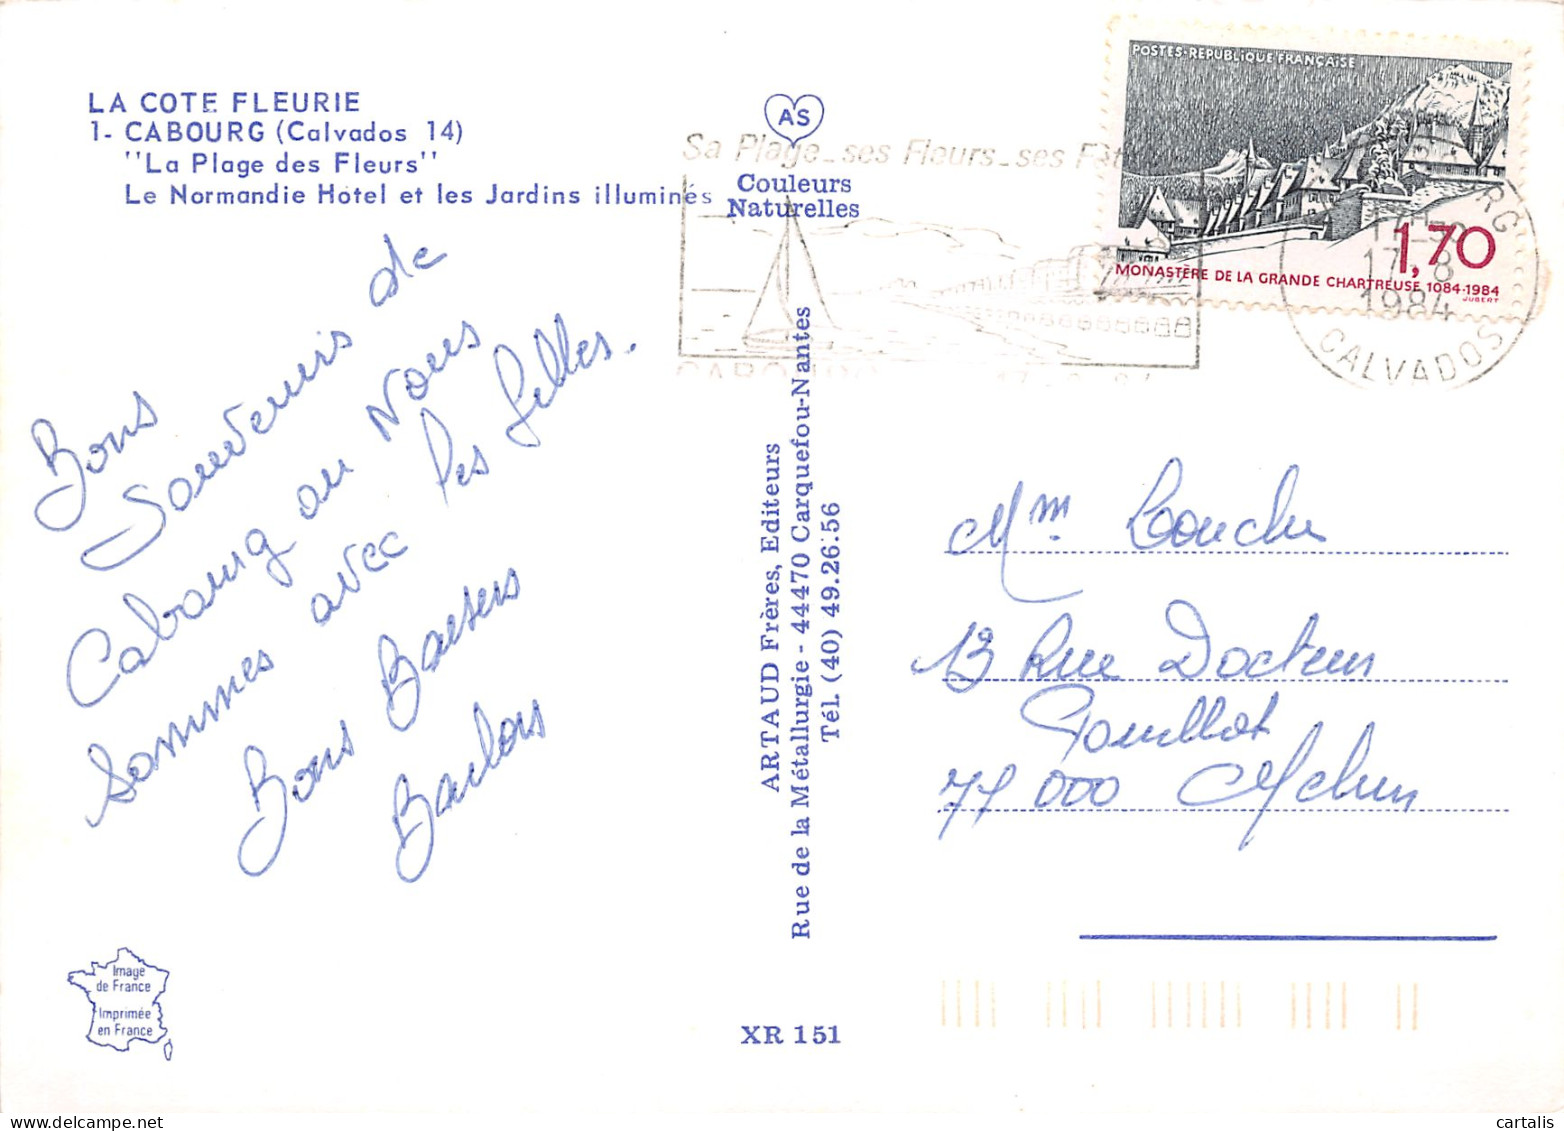 LA COTE FLEURIE
1- CABOURG (Calvados 14)
"La Plage des Fleurs"
Le Normandie Hôtel et les Jardins illuminés
AS
Couleurs
Naturelles
Sa Plage_ses Fleurs_ses Fêt
POSTES·RÉPUBLIQUE FRANÇAISE
1,70
MONASTÈRE DE LA GRANDE CHARTREUSE 1084-1984
JUBERT
17-8
1984
CALVADOS
Bons
Souvenirs de
Cabourg ou Nous
sommes avec les filles.
Bons Baisers
ARTAUD Frères, Editeurs
Rue de la Métallurgie - 44470 Carquefou-Nantes
Tél. (40) 49.26.56
Mme
13 Rue Docteur
Pouillot
77000 Melun
Image
de France
Imprimée
en France
XR 151
cartalis